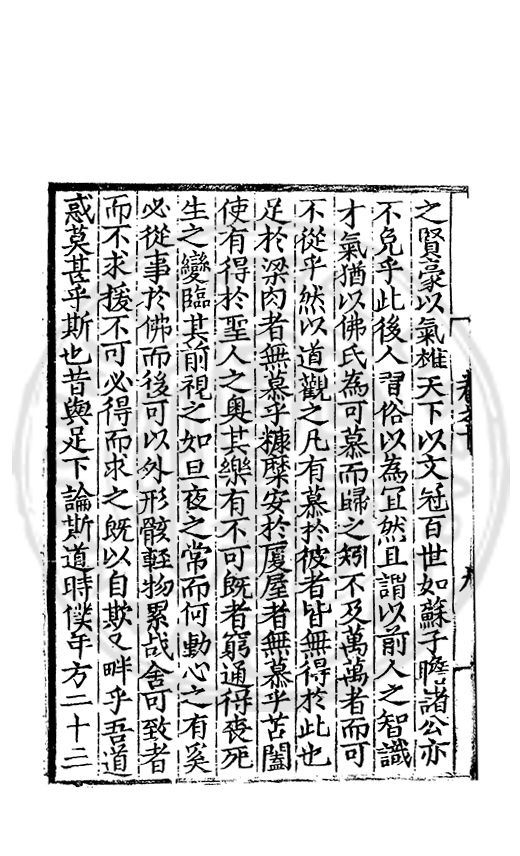 之賢豪以氣雄天下以文冠百世如蘇子瞻諸公亦
不免乎此後人習俗以為宜然且謂以前人之智識
才氣猶以佛氏為可慕而歸之矧不及萬萬者而可
不從乎然以道觀之凡有慕於彼者皆無得於此也
足於梁肉者無慕乎糠糜安於廈屋者無慕乎苫闔
使有得於聖人之奥其樂有不可既者窮通得喪死
生之變臨其前視之如旦夜之常而何動心之有奚
必從事於佛而後可以外形骸輕物累战舍可致者
而不求援不可必得而求之既以自欺又畔乎吾道
惑莫甚乎斯也昔與足下論斯道時僕年方二十二